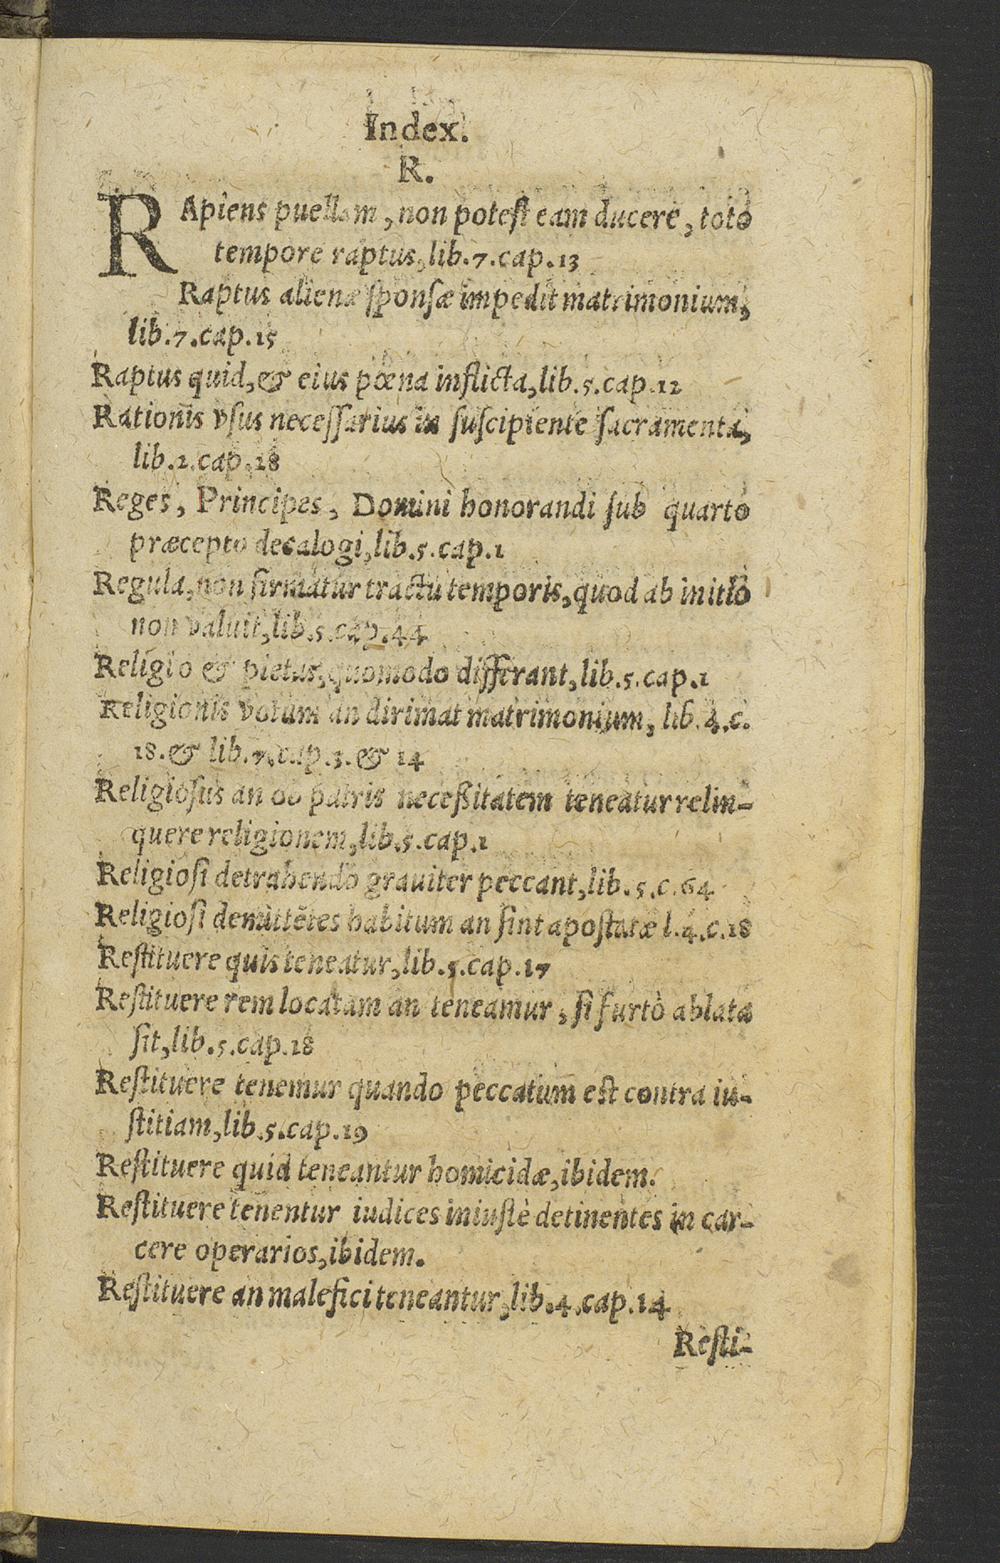 Index.
R.
RApiens puellam, non potest eam ducere, toto
tempore raptus, lib. 7. cap. 13
Raptus alienæ sponsæ impedit matrimonium,
lib. 7. cap. 15
Raptus quid, & eius pœna inflicta, lib. 5. cap. 12
Rationis vsus necessarius in suscipiente sacramenta,
lib. 2. cap. 18
Reges, Principes, Domini honorandi sub quarto
præcepto decalogi, lib. 5. cap. 1
Regula, non firmatur tractu temporis, quod ab initio
non valuit, lib. 5. cap. 44
Religio & pietas, quomodo differant, lib. 5. cap. 1
Religionis votum an dirimat matrimonium, lib. 4. c.
18. & lib. 7. cap. 3. & 14
Religiosus an ob patris necessitatem teneatur relin-
quere religionem, lib. 5. cap. 1
Religiosi detrahendo grauiter peccant, lib. 5. c. 64
Religiosi demittẽtes habitum an sint apostatæ l. 4. c. 18
Restituere quis teneatur, lib. 5. cap. 17
Restituere rem locatam an teneamur, si furto ablata
sit, lib. 5. cap. 18
Restituere tenemur quando peccatum est contra iu-
stitiam, lib. 5. cap. 19
Restituere quid teneantur homicidæ, ibidem.
Restituere tenentur iudices iniustè detinentes in car-
cere operarios, ibidem.
Restituere an malefici teneantur, lib. 4. cap. 14
Resti-